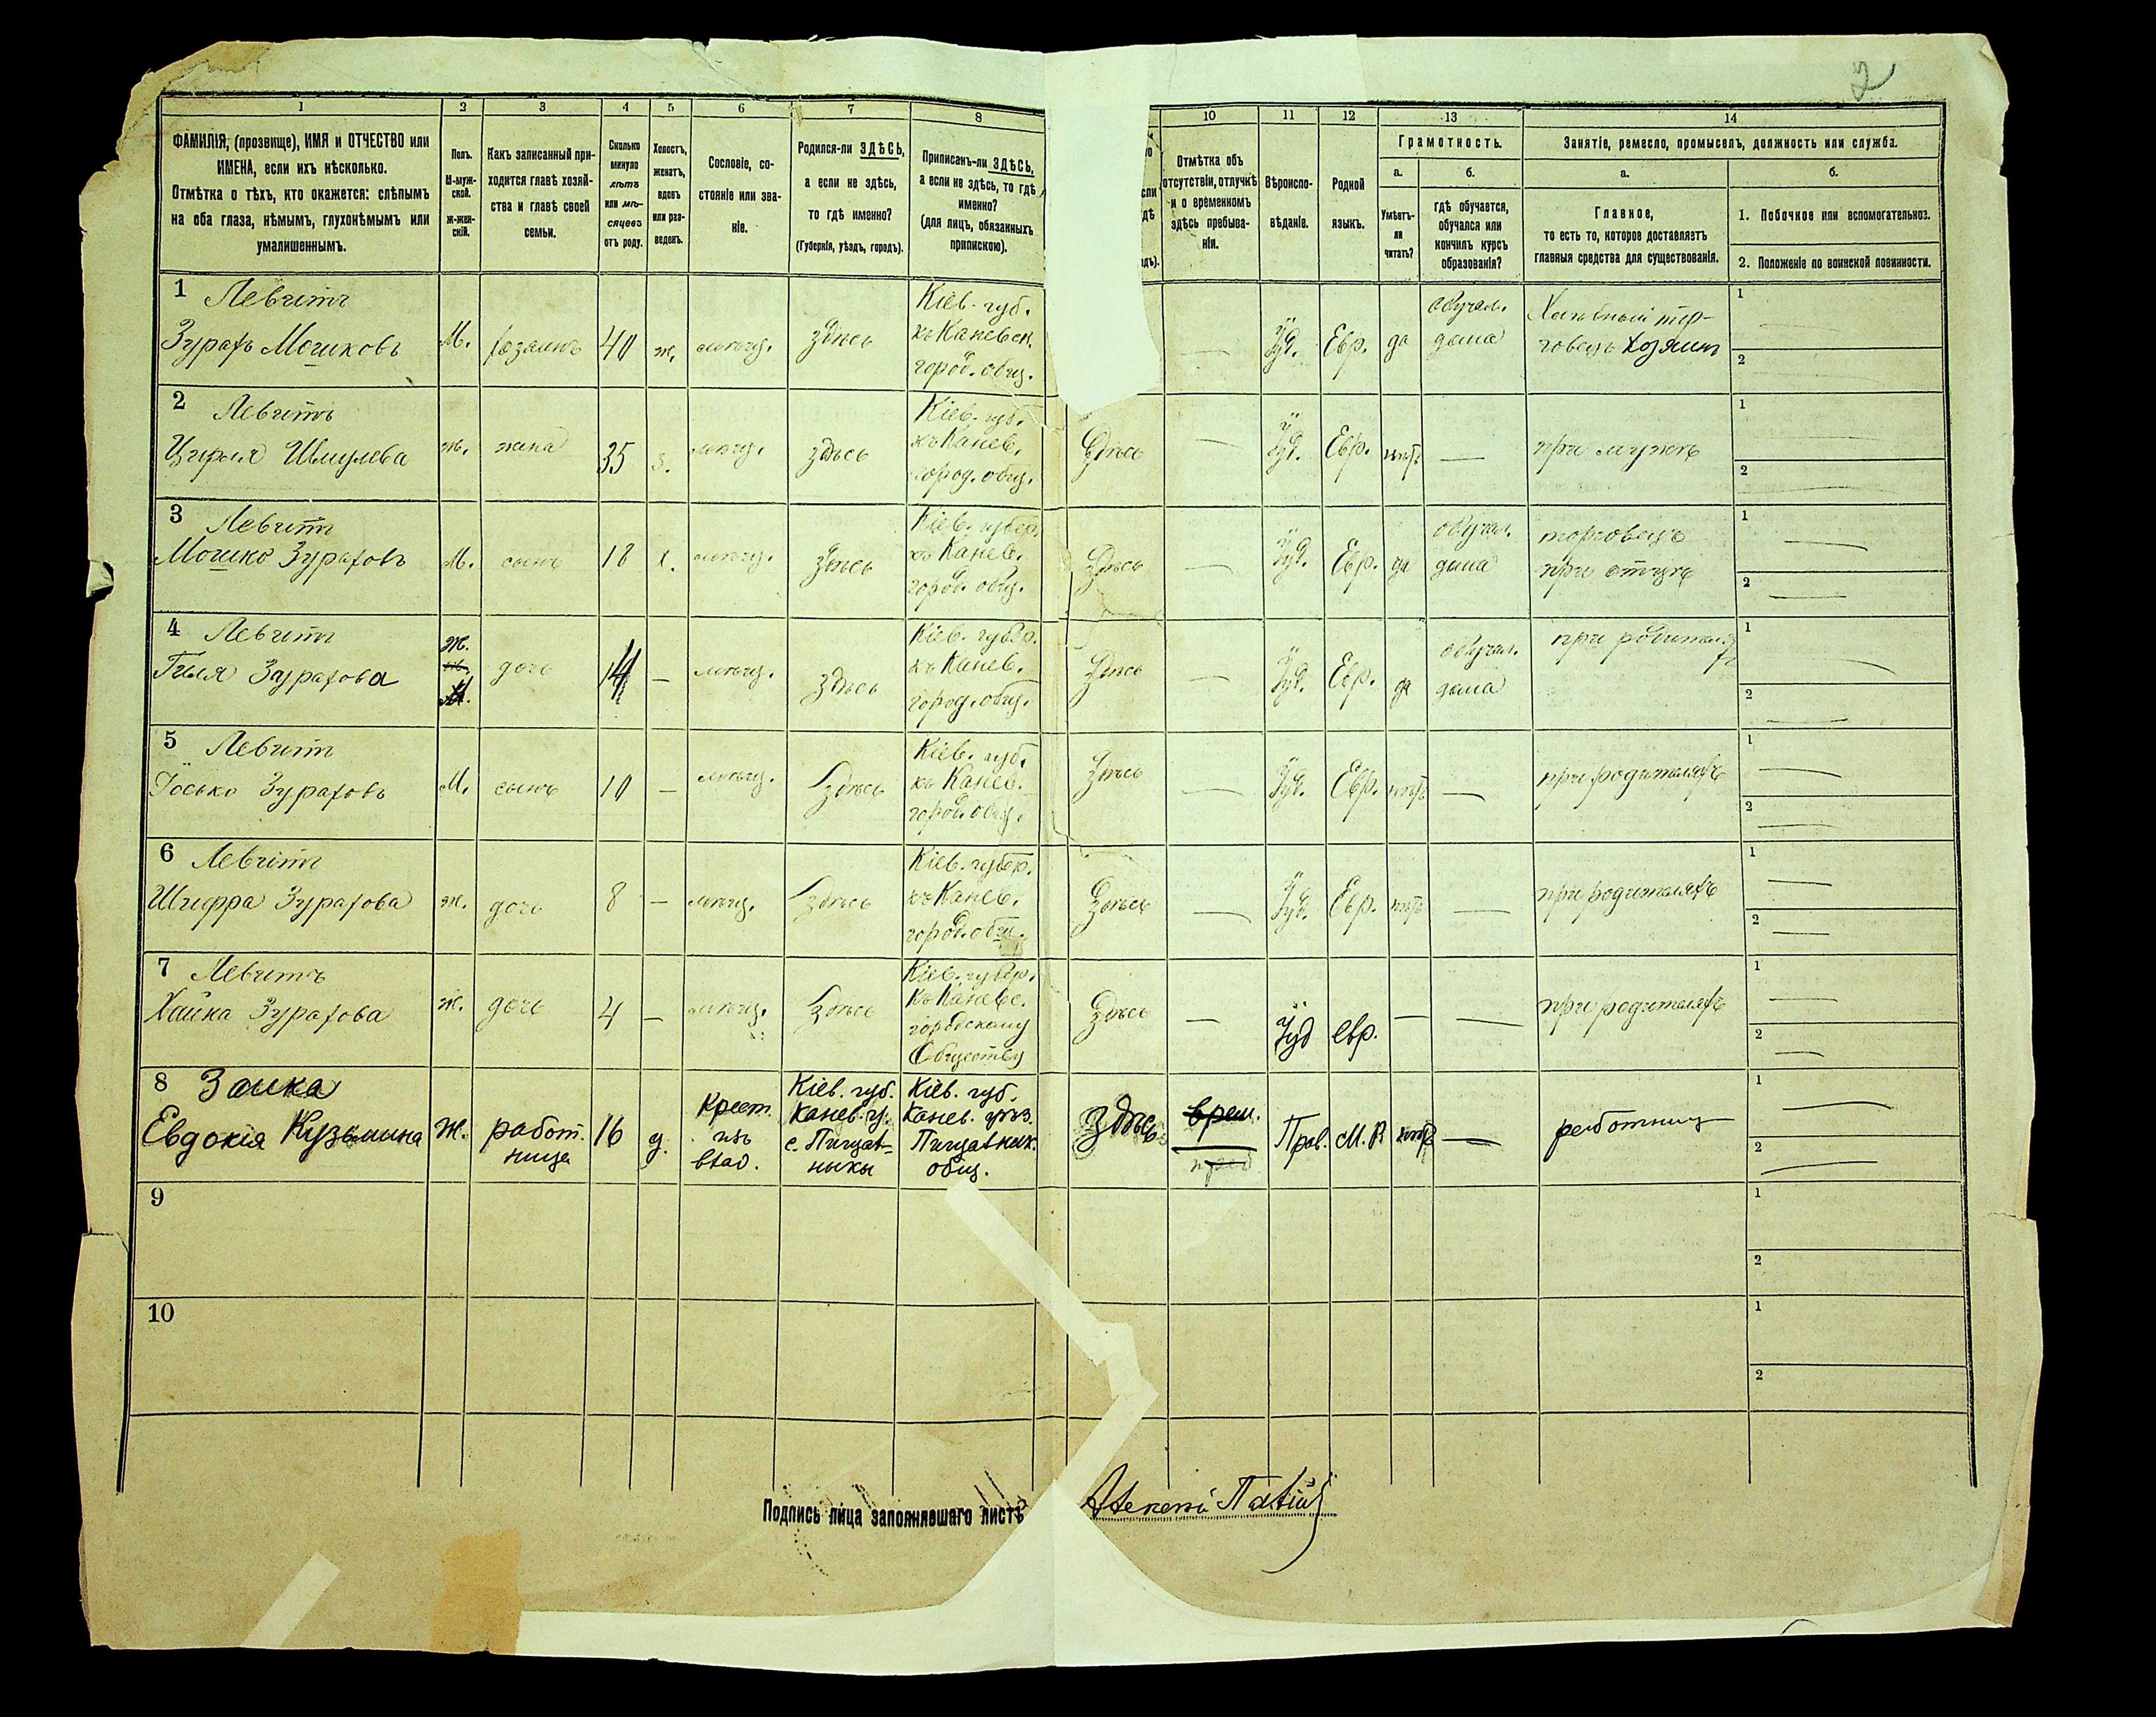 2
1 2 3 4 5 6 7 8 10 11 12 13 14
ФАМИЛІЯ, (прозвище), ИМЯ и ОТЧЕСТВО или
ИМЕНА, если ихъ нѣсколько.
Отмѣтка о тѣхъ, кто окажется: слѣпымъ
на оба глаза, нѣмымъ, глухонѣмымъ или
умалишеннымъ.
Полъ.
М-муж-
ской.
ж-жен-
скій.
Какъ записанный при-
ходится главѣ хозяй-
ства и главѣ своей
семьи.
Сколько
минуло
лѣтъ
или мѣ-
сяцевъ
отъ роду.
Холостъ,
женатъ,
вдовъ
или раз-
веденъ.
Сословіе, со-
стояніе или зва-
ніе.
Родился-ли ЗДѢСЬ,
а если не здѣсь,
то гдѣ именно?
(Губернія, уѣздъ, городъ).
Приписанъ-ли ЗДѢСЬ,
а если не здѣсь, то гдѣ
именно?
(для лицъ, обязанныхъ
припискою).
Отмѣтка объ
отсутствіи, отлучкѣ
и о временномъ
здѣсь пребыва-
ніи.
Вѣроиспо-
вѣданіе.
Родной
языкъ.
Грамотность.
а.
Умѣетъ-
ли
читать?
б.
гдѣ обучается,
обучался или
кончилъ курсъ
образованія?
Занятіе, ремесло, промыселъ, должность или служба.
а.
Главное,
то есть то, которое доставляетъ
главныя средства для существованія.
б.
1. Побочное или вспомогательное.
2. Положеніе по воинской повинности.
1 Левитъ
Зурахъ Мошковъ
М. хозяинъ 40 ж. мѣщ. здѣсь
Кіев. губ.
къ Каневск.
город. общ.
— Іуд. Евр. да
обучал.
дома
Хлѣбный тор-
говецъ хозяинъ
1
2
2 Левитъ
Цирля Шмулева
ж. жена 35 з. мѣщ. здѣсь
Кіев. губ.
къ Канев.
город. общ.
Здѣсь — Іуд. Евр. нѣтъ — при мужѣ
1
2
3 Левитъ
Мошко Зураховъ
М. сынъ 18 х. мѣщ. здѣсь
Кіев. губер.
къ Канев.
город. общ.
Здѣсь — Іуд. Евр. да
обучал.
дома
торговецъ
при отцѣ
1
2
4 Левитъ
Гиля Зурахова
Ж.
М.
дочь 14 — мѣщ. здѣсь
Кіев. губер.
къ Канев.
город. общ.
Здѣсь — Іуд. Евр. да
обучал.
дома
1
2
5 Левит
Іосько Зураховъ
М. сынъ 10 — мѣщ. здѣсь
Кіев. губ.
къ Канев.
город. общ.
Здѣсь — Іуд. Евр. нѣтъ — при родителяхъ
1
2
6 Левитъ
Шифра Зурахова
ж. дочь 8 — мѣщ. здѣсь
Кіев. губер.
къ Канев.
город. общ.
Здѣсь — Іуд. Евр. нѣтъ — при родителяхъ
1
2
7 Левитъ
Хайка Зурахова
ж. дочь 4 — мѣщ. здѣсь
Кіев. губер.
къ Каневс.
городскому
Обществу
Здѣсь — Іуд евр. — — при родителяхъ
1
2
8 Заика
Евдокія Кузьмина
Ж.
работ.
ница
16 д.
Крест.
изъ
влад.
Кіев. губ.
Канев. у.
с. Пищаль-
ники
Кіев. губ.
Канев. уѣз.
Пищальник.
общ.
здѣсь
врем.
Прав. М. Р. нѣтъ — работниц
1
2
9
1
2
10
1
2
Подпись лица заполнявшаго листъ